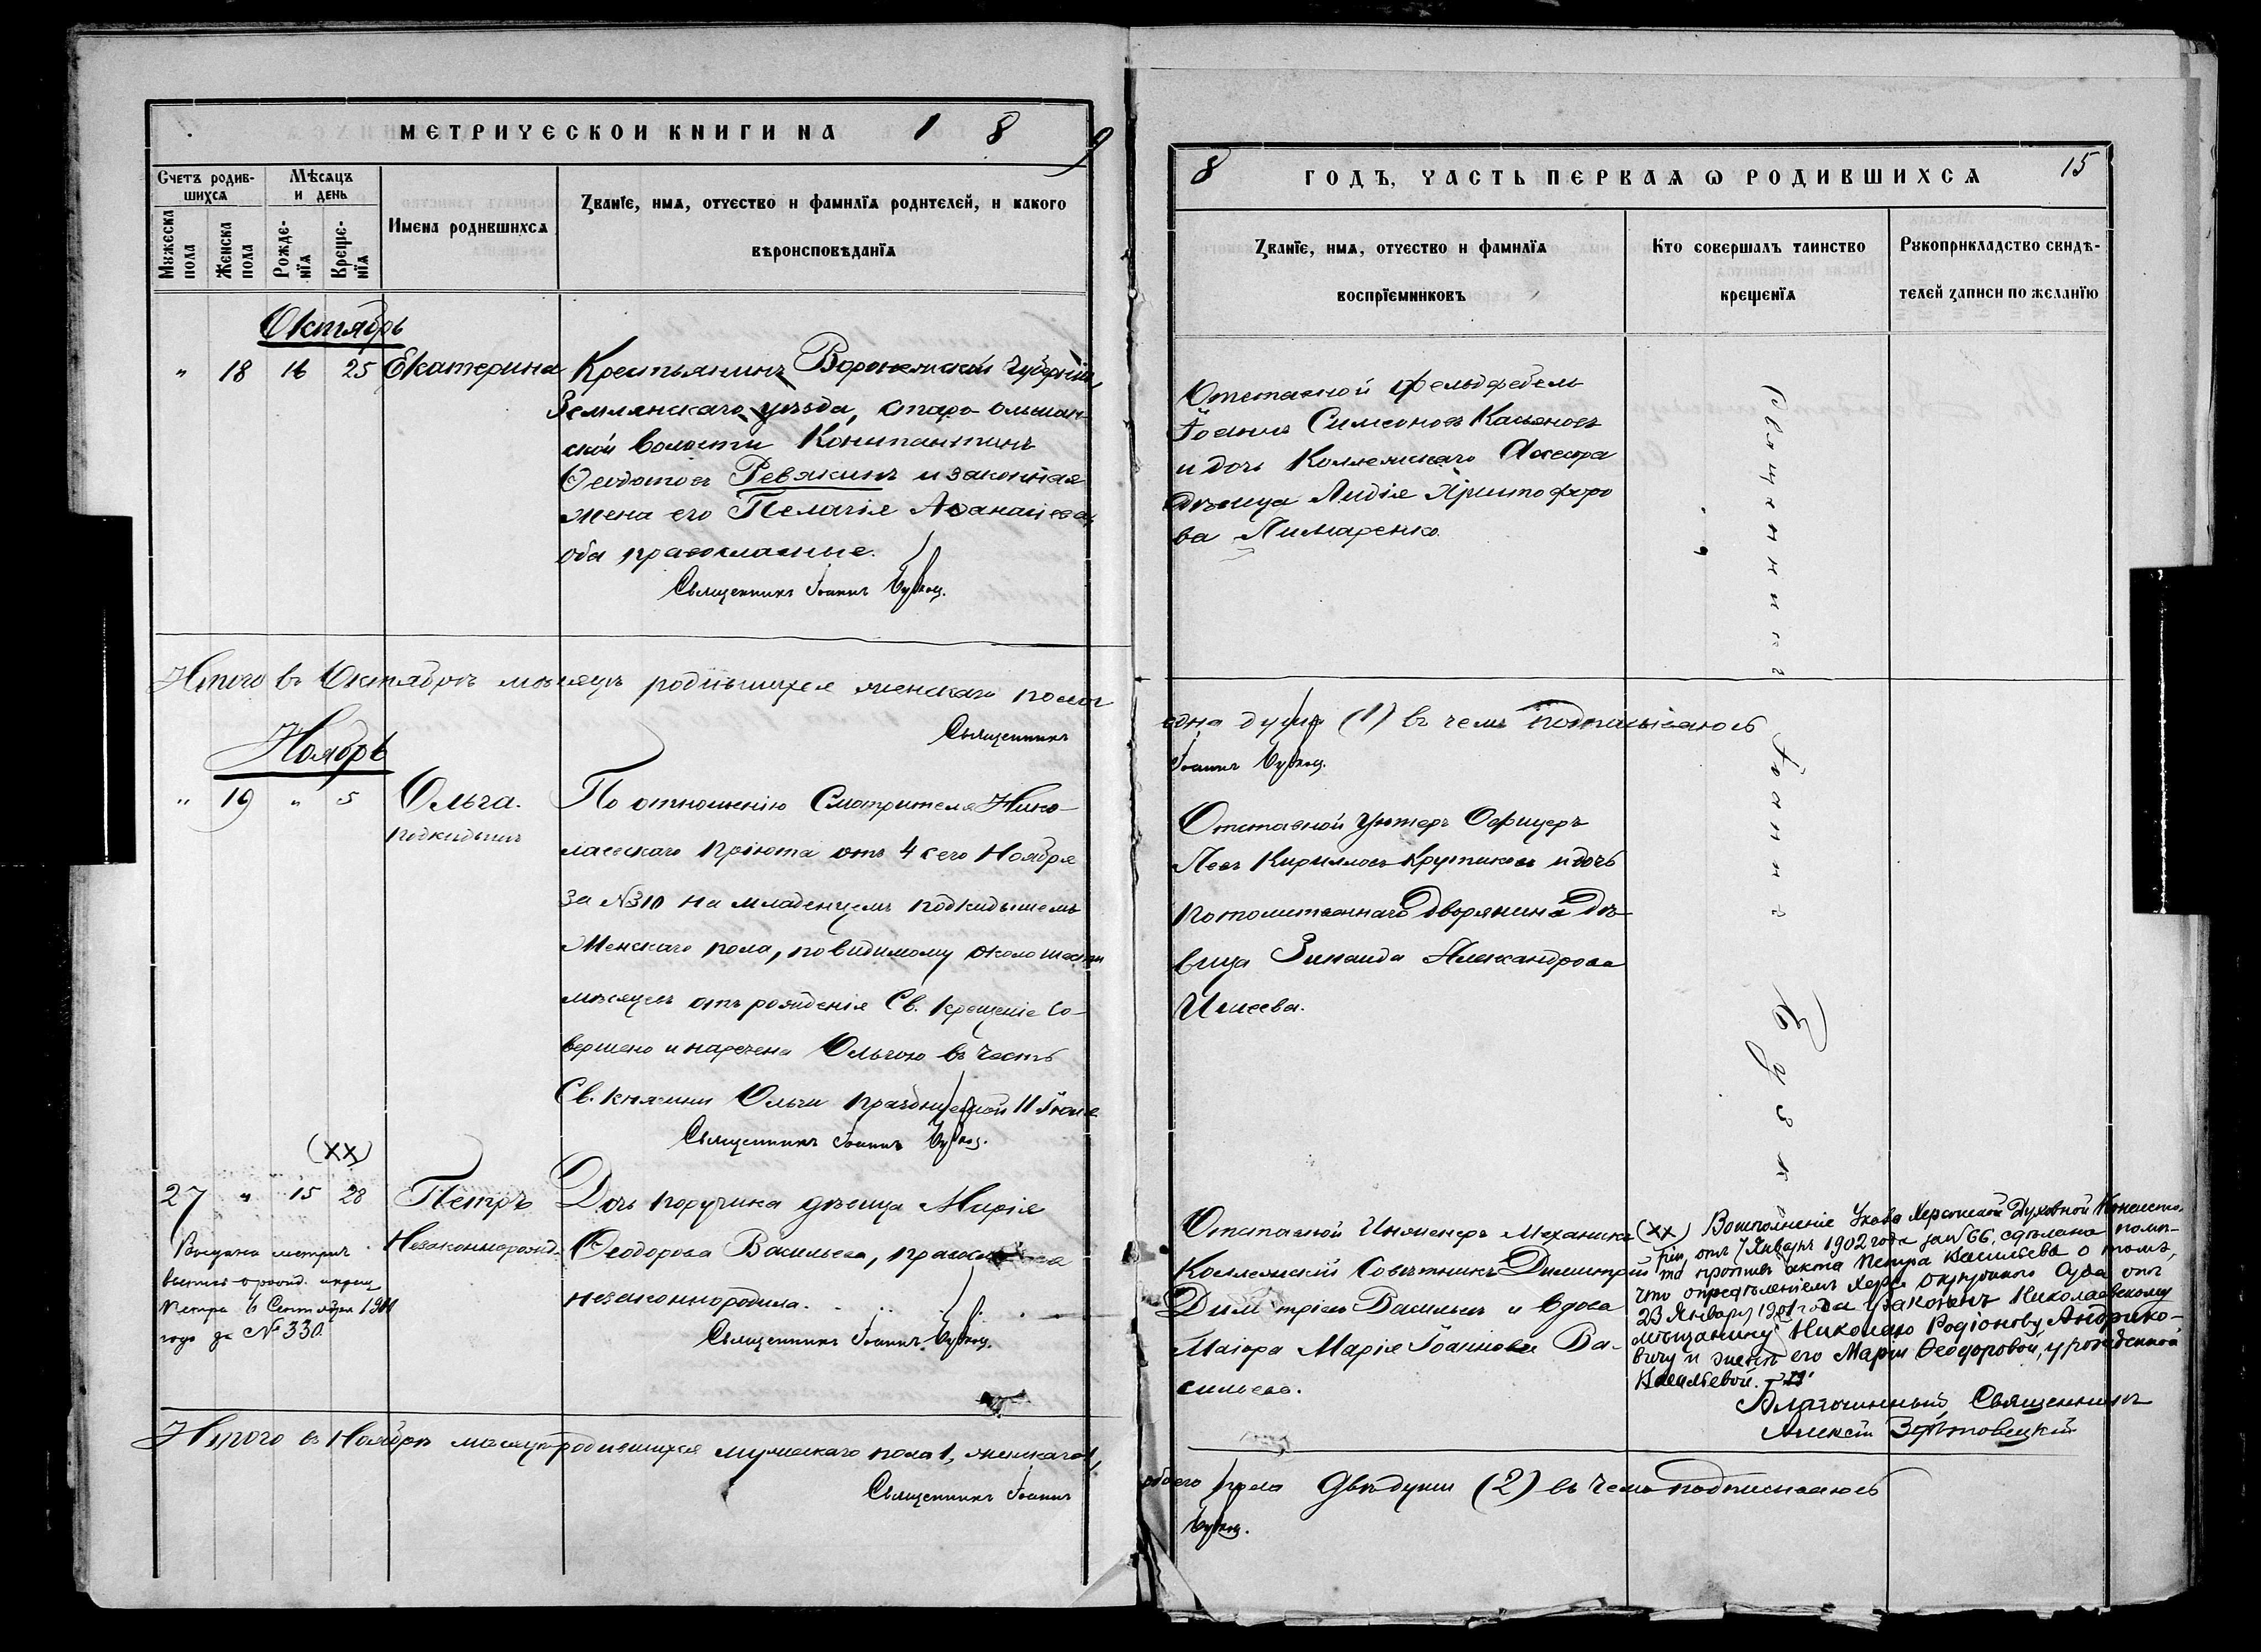 МЕТРИЧЕСКОЙ КНИГИ НА 1 8 9
Счетъ родив-
шихся
Мѣсяцъ
и день
Мужеска
пола
Женска
пола
Рожде-
нія
Креще-
нія
Имена родившихся
Званіе, имя, отчество и фамилія родителей, и какого
вѣроисповѣданія
Октябрь
" 18 16 25 Екатерина
Крестьянинъ Воронежской губерніи,
Землянскаго уѣзда, Старо-Ольшан-
ской волости Константинъ
Ѳеодотовъ Ревякинъ и законная
жена его Пелагія Аѳанасіева,
оба православные.
Священникъ Іоаннъ
Итого въ Октябрѣ мѣсяцѣ родившихся женскаго пола
Священникъ
Ноябрь
" 19 " 5 Ольга.
подкидышъ
По отношенію Смотрителя Нико-
лаевскаго Пріюта отъ 4 сего Ноября
за №310 на младенцемъ подкидышемъ
женскаго пола, повидимому около шести
мѣсяцевъ отъ рожденія Св. Крещеніе со-
вершено и наречена Ольгою въ честь
Св. Княгини Ольги празднуемой 11 Іюля
Священникъ Іоаннъ
(хх)
27 " 15 28 Петръ
Незаконнорожд.
Выдана метрич.
о рожд. и крещ.
Петра 6 Сентября 1901
года за № 330.
Дочь поручика дѣвица Марія
Ѳеодорова Васильева, православная
незаконнородила.
Священникъ Іоаннъ
Итого въ Ноябрѣ мѣсяцѣ родившихся мужескаго пола 1, женскаго 1,
Священникъ Іоаннъ
8 ГОДЪ, ЧАСТЬ ПЕРВАЯ Ѡ РОДИВШИХСЯ 15
Званіе, имя, отчество и фамилія
воспріемниковъ
Кто совершалъ таинство
крещенія
Рукоприкладство свидѣ-
телей записи по желанію
Отставной фельдфебель
Іоаннъ Симеоновъ Касьяновъ
и дочь Коллежскаго Ассесора
дѣвица Лидія Христофоро
ва Писаренко.
Священникъ Іоаннъ
одна душа (1) въ чемъ подписываюсь
Іоаннъ
Отставной Унтеръ Офицеръ
Левъ Кирилловъ Крутиковъ и дочь
потомственнаго Дворянина Дѣ-
вица Зинаида Александрова
Отставной Инженеръ Механикъ
Коллежскій Совѣтникъ Димитрій
Димитріевъ Васильевъ и вдова
Маіора Марія Іоаннова Ва-
сильева.
(хх) Во исполненіе Указа Херсонской Духовной Консисто-
ріи, отъ 7 Января 1902 года за №66, сдѣлана помѣ-
та противъ акта Петра Васильева о томъ,
что опредѣленіемъ Херс. Окружнаго Суда отъ
23 Января 1901 года узаконенъ Николаевскому
мѣщанину Николаю Родіонову Андріко-
вичу и женѣ его Маріи Ѳеодоровой, урожденной
Васильевой.
Благочинный, Священникъ
Алексій
обоего пола двѣ души (2) въ чемъ подписываюсь